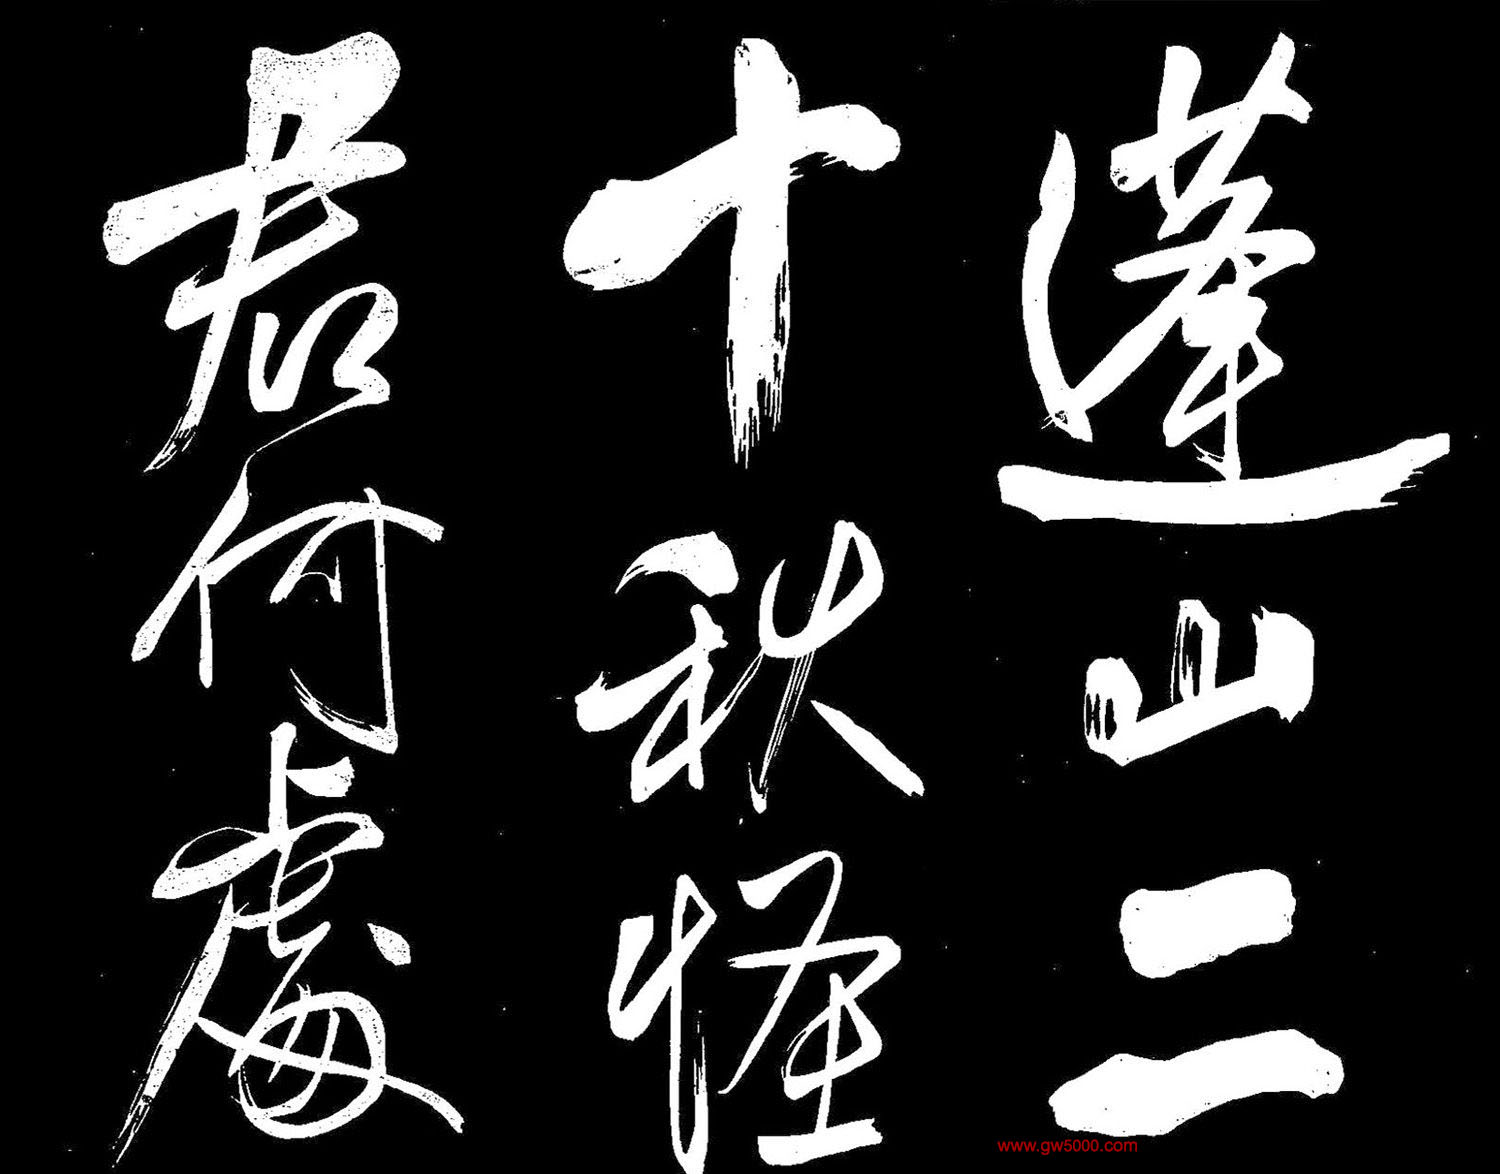 蓬山二
十秋怪
君何處
www.gw5000.com